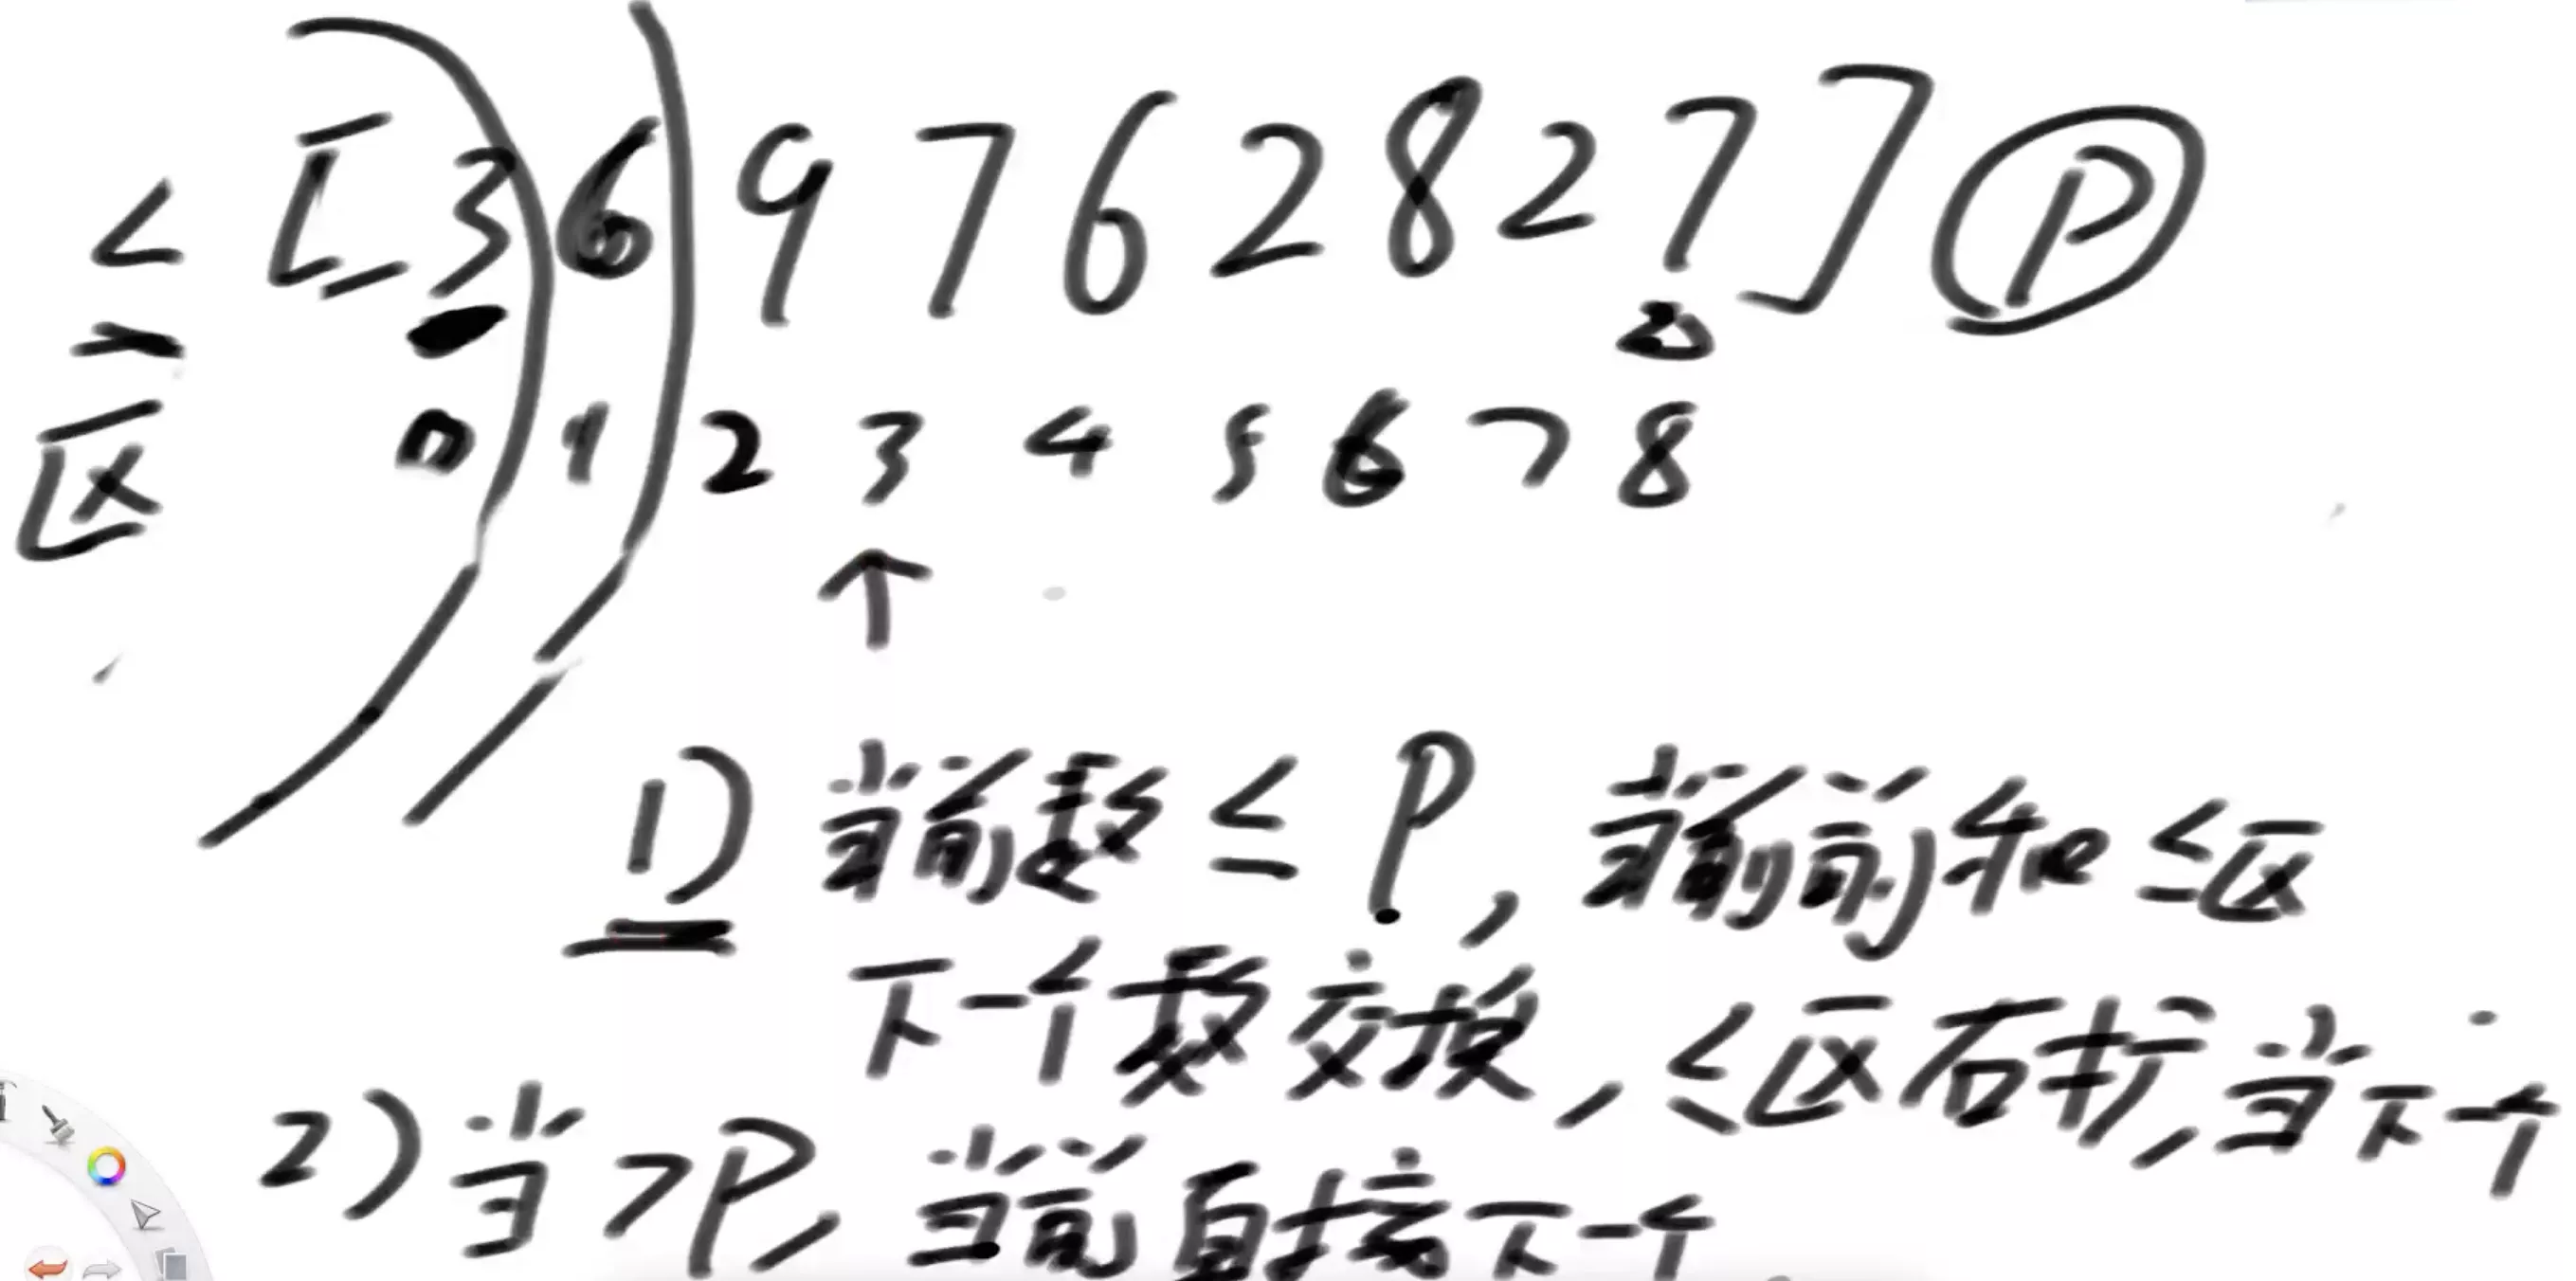 ≤区 [3 6 9 7 6 2 8 2 7] P
0 1 2 3 4 5 6 7 8
↑
1) 当前数 ≤ P, 当前和 ≤区
下一个数交换, ≤区右扩, 当下一个
2) 当 >P, 当前直接下一个.